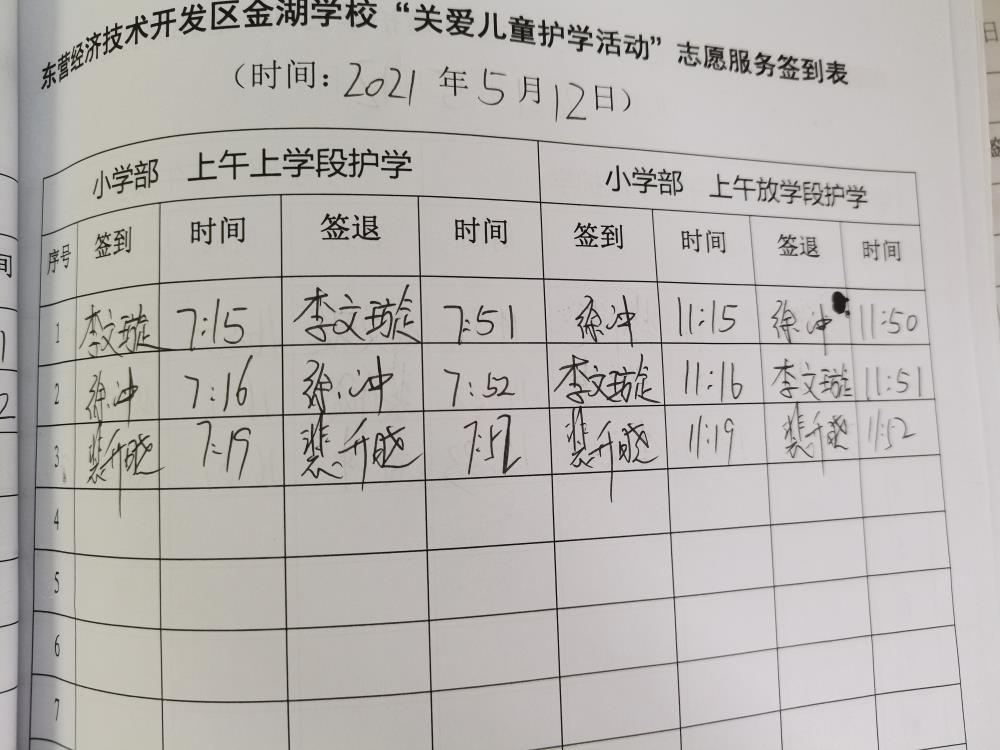 东营经济技术开发区金湖学校“关爱儿童护学活动”志愿服务签到表
（时间：2021年5月12日）
小学部 上午上学段护学 小学部 上午放学段护学
序号 签到 时间 签退 时间 签到 时间 签退 时间
1 李文璇 7:15 李文璇 7:51 徐冲 11:15 徐冲 11:50
2 徐冲 7:16 徐冲 7:52 李文璇 11:16 李文璇 11:51
3 裴升晓 7:19 裴升晓 7:52 裴升晓 11:19 裴升晓 11:52
4
5
6
7